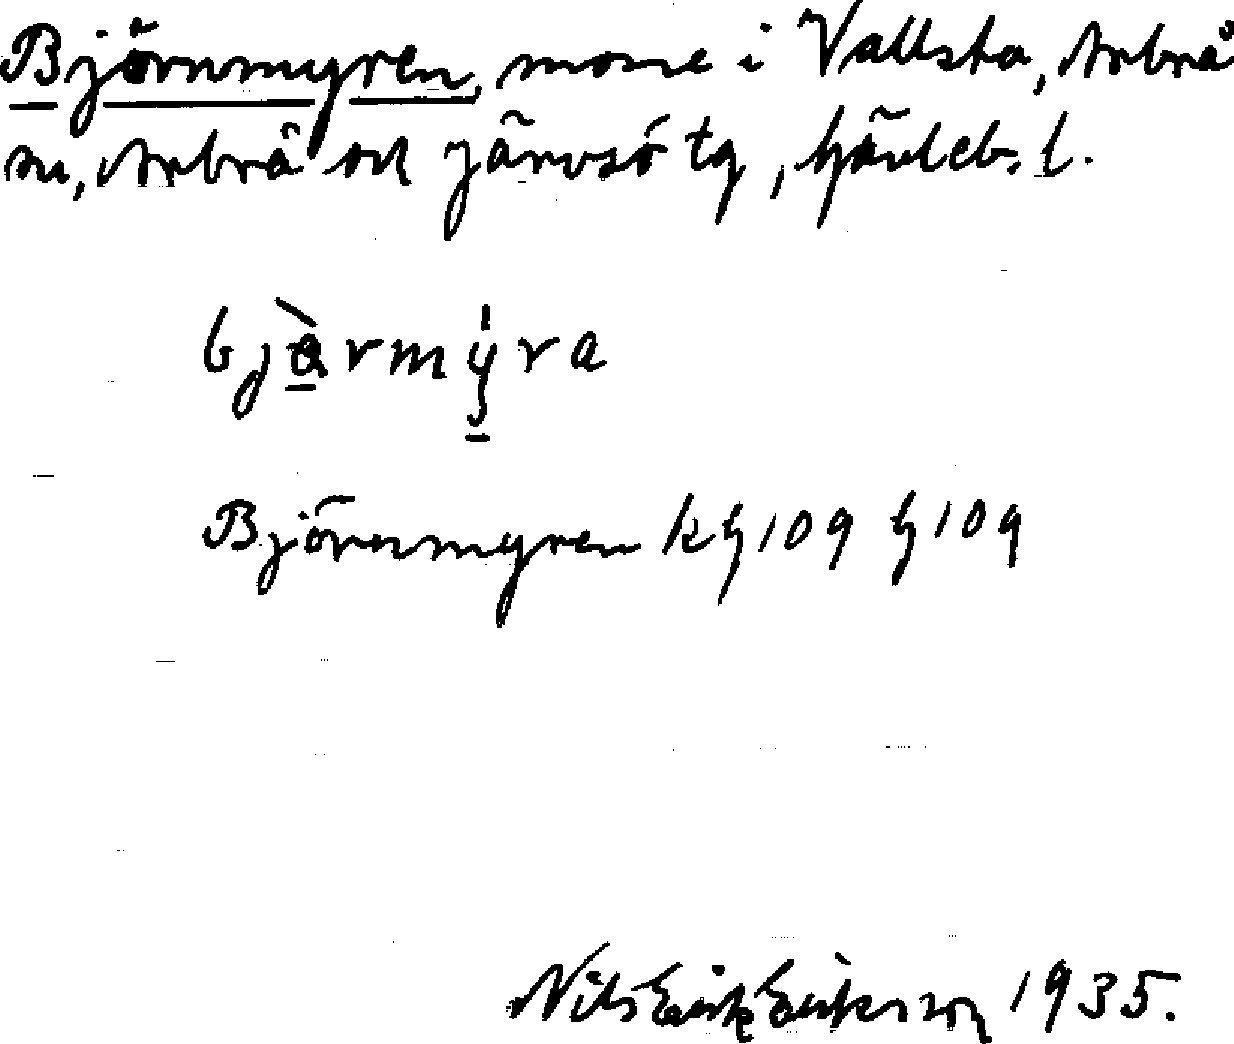 Björnmyren, mosse i Vallsta, Arbrå
sn, Arbrå och Järvsö tg, Gävleb. l.
bjàrmyra
Björnmyren kG 109 G 109
Nils Erik Eriksson 1935.